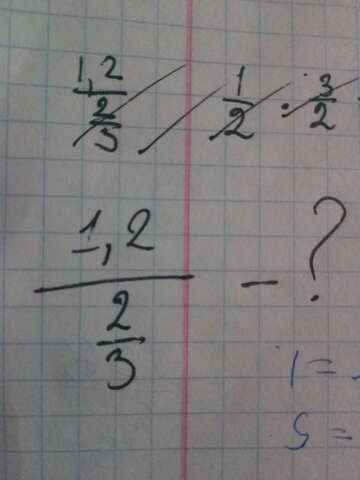 1,2
2
3
1
2
·
3
2
1,2
2
3
- ?
1 =
5 =